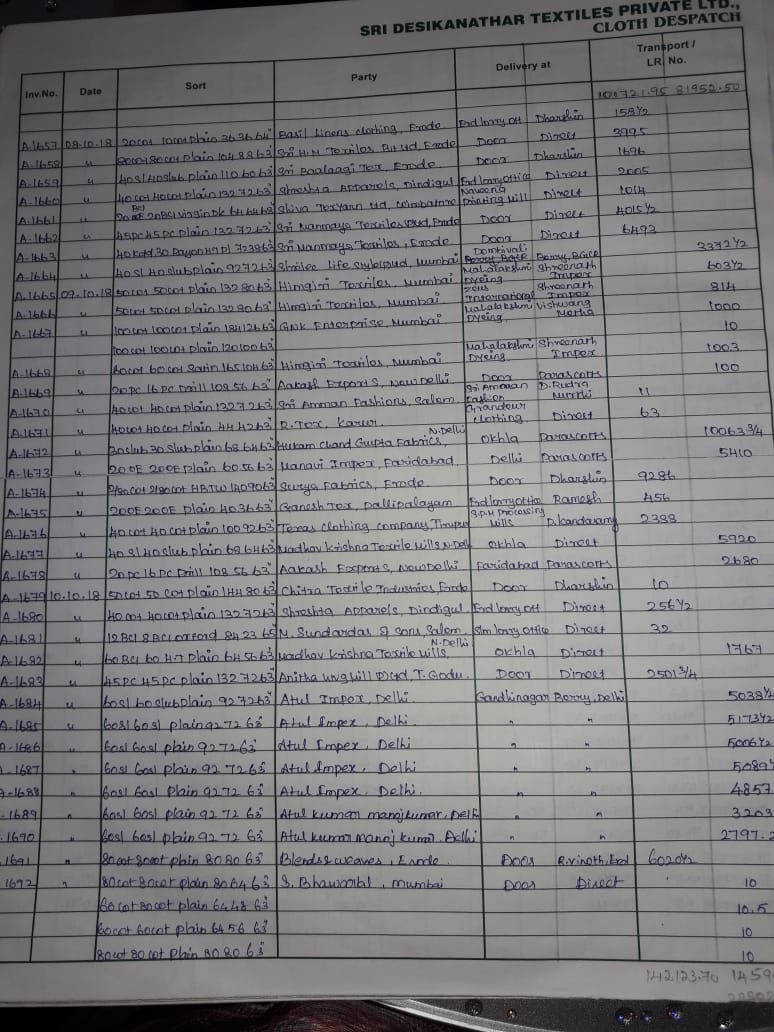 SRI DESIKANATHAR TEXTILES PRIVATE LTD.,
CLOTH DESPATCH
Inv.No. Date Sort Party Delivery at Transport / LR. No.
81952.50
A-1657 08.10.18 20cot 10cot plain 36 36 64" Basil Linens clothing, Erode Erd lorry off Dharshin 158 1/2
A-1658 " 80cot 80cot plain 104 88 63" Sri H.M Textiles Pvt Ltd, Erode Door Direct 3995
A-1659 " 40sl 40slub plain 110 60 63" Sri Baalaagi Tex, Erode Door Dharshin 1696
A-1660 " 40cot 40cot plain 132 72 63" Shreshta Apparels, Dindigul Erd lorry office Direct 2005
A-1661 " 20BCI virgin Dk 64 64 63" Shiva Texyarn Ltd, Coimbatore Printing Mill Direct 1014
A-1662 " 45pc 45pc plain 132 72 63" Sri Nanmaya Textiles Door Direct 4015 1/2
A-1663 " 72 39 63" Sri Nanmaya Textiles, Erode Door Direct 6493
A-1664 " 40sl 40slub plain 92 72 63" Life Style Mumbai Dombivali Berry, BGCE 3372 1/2
A-1665 09.10.18 50cot 50cot plain 132 80 63" Himgiri Textiles, Mumbai Mahalakshmi Dyeing Shreenath Impex 603 1/2
A-1666 " 50cot 50cot plain 132 80 63" Himgiri Textiles, Mumbai Zeus International Shreenath Impex 814
A-1667 " 100cot 100cot plain 124 63" GNK Enterprise, Mumbai Mahalakshmi Dyeing Vishwang Mertha 1000
100cot 100cot plain 120 100 63" 10
A-1668 " 60cot 60cot Satin 165 104 63" Himgiri Textiles, Mumbai Mahalakshmi Dyeing Shreenath Impex 1003
A-1669 " 20pc 16pc Drill 108 56 63" Aakash Exports, New Delhi Door Parascorts 100
A-1670 " 40cot 40cot plain 132 72 63" Sri Amman Fashions, Salem Sri Amman Fashion D.Rudra Murthi 11
A-1671 " 40cot 40cot plain 44 42 63" R. Tex, Karur. Grandeur clothing Direct 63
A-1672 " 30slub 30slub plain 68 64 63" Hukam Chand Gupta Fabrics, N.Delhi Okhla Parascorts 10063 3/4
A-1673 " 20OE 20OE plain 60 56 63" Manavi Impex, Faridabad Delhi Parascorts 5410
A-1674 " 2/80cot 2/80cot HBTW 140 90 63" Surya Fabrics, Erode Door Dharshin 9286
A-1675 " 20OE 20OE plain 40 36 63" Ganesh Tex, Pallipalayam Erd lorry office Ramesh 456
A-1676 " 40cot 40cot plain 100 92 63" Texas Clothing company, Tirupur S.P.M Processing Mills P.kandavang 2388
A-1677 " 40sl 40slub plain 68 64 63" Madhav Krishna Textile Mills N.Delhi Okhla Direct 5920
A-1678 " 20pc 16pc Drill 108 56 63" Aakash Exports, New Delhi Faridabad Parascorts 2680
A-1679 10.10.18 50cot 50cot plain 144 80 63" Chitra Textile Industries, Erode Door Dharshin 10
A-1680 " 40cot 40cot plain 132 72 63" Shreshta Apparels, Dindigul Erd lorry off Direct 256 1/2
A-1681 " 12BCI 8BCI oxford 84 23 65" M. Sundardas & sons, Salem Slm lorry office Direct 32
A-1682 " 60BCI 60 47 plain 64 56 63" Madhav Krishna Textile Mills, N.Delhi Okhla Direct 1767
A-1683 " 45pc 45pc plain 132 72 63" Anitha Mill T. Godu. Door Direct 2501 3/4
A-1684 " 60sl 60slub plain 92 72 63" Atul Impex, Delhi Gandhinagar Berry, Delhi 5038 1/2
A-1685 " 60sl 60sl plain 92 72 63" Atul Impex, Delhi " " 5173 1/2
A-1686 " 60sl 60sl plain 92 72 63" Atul Impex, Delhi " " 5006 1/2
A-1687 " 60sl 60sl plain 92 72 63" Atul Impex, Delhi " " 5089
A-1688 " 60sl 60sl plain 92 72 63" Atul Impex, Delhi " " 4857
-1689 " 60sl 60sl plain 92 72 63" Atul kumar manoj kumar, Delhi " " 3203
.1690 " 60sl 60sl plain 92 72 63" Atul kumar manoj kumar, Delhi " " 2797.2
1691 " 80cot 80cot plain 80 80 63" Blends & weaves, Erode. Door R.vinoth, Erd 6020 1/2
1692 " 80cot 80cot plain 80 64 63" S. Bhawarlal, mumbai Door Direct 10
60cot 80cot plain 64 48 63" 10.5
60cot 60cot plain 64 56 63" 10
80cot 80cot plain 80 80 63" 10
142123.70 1459